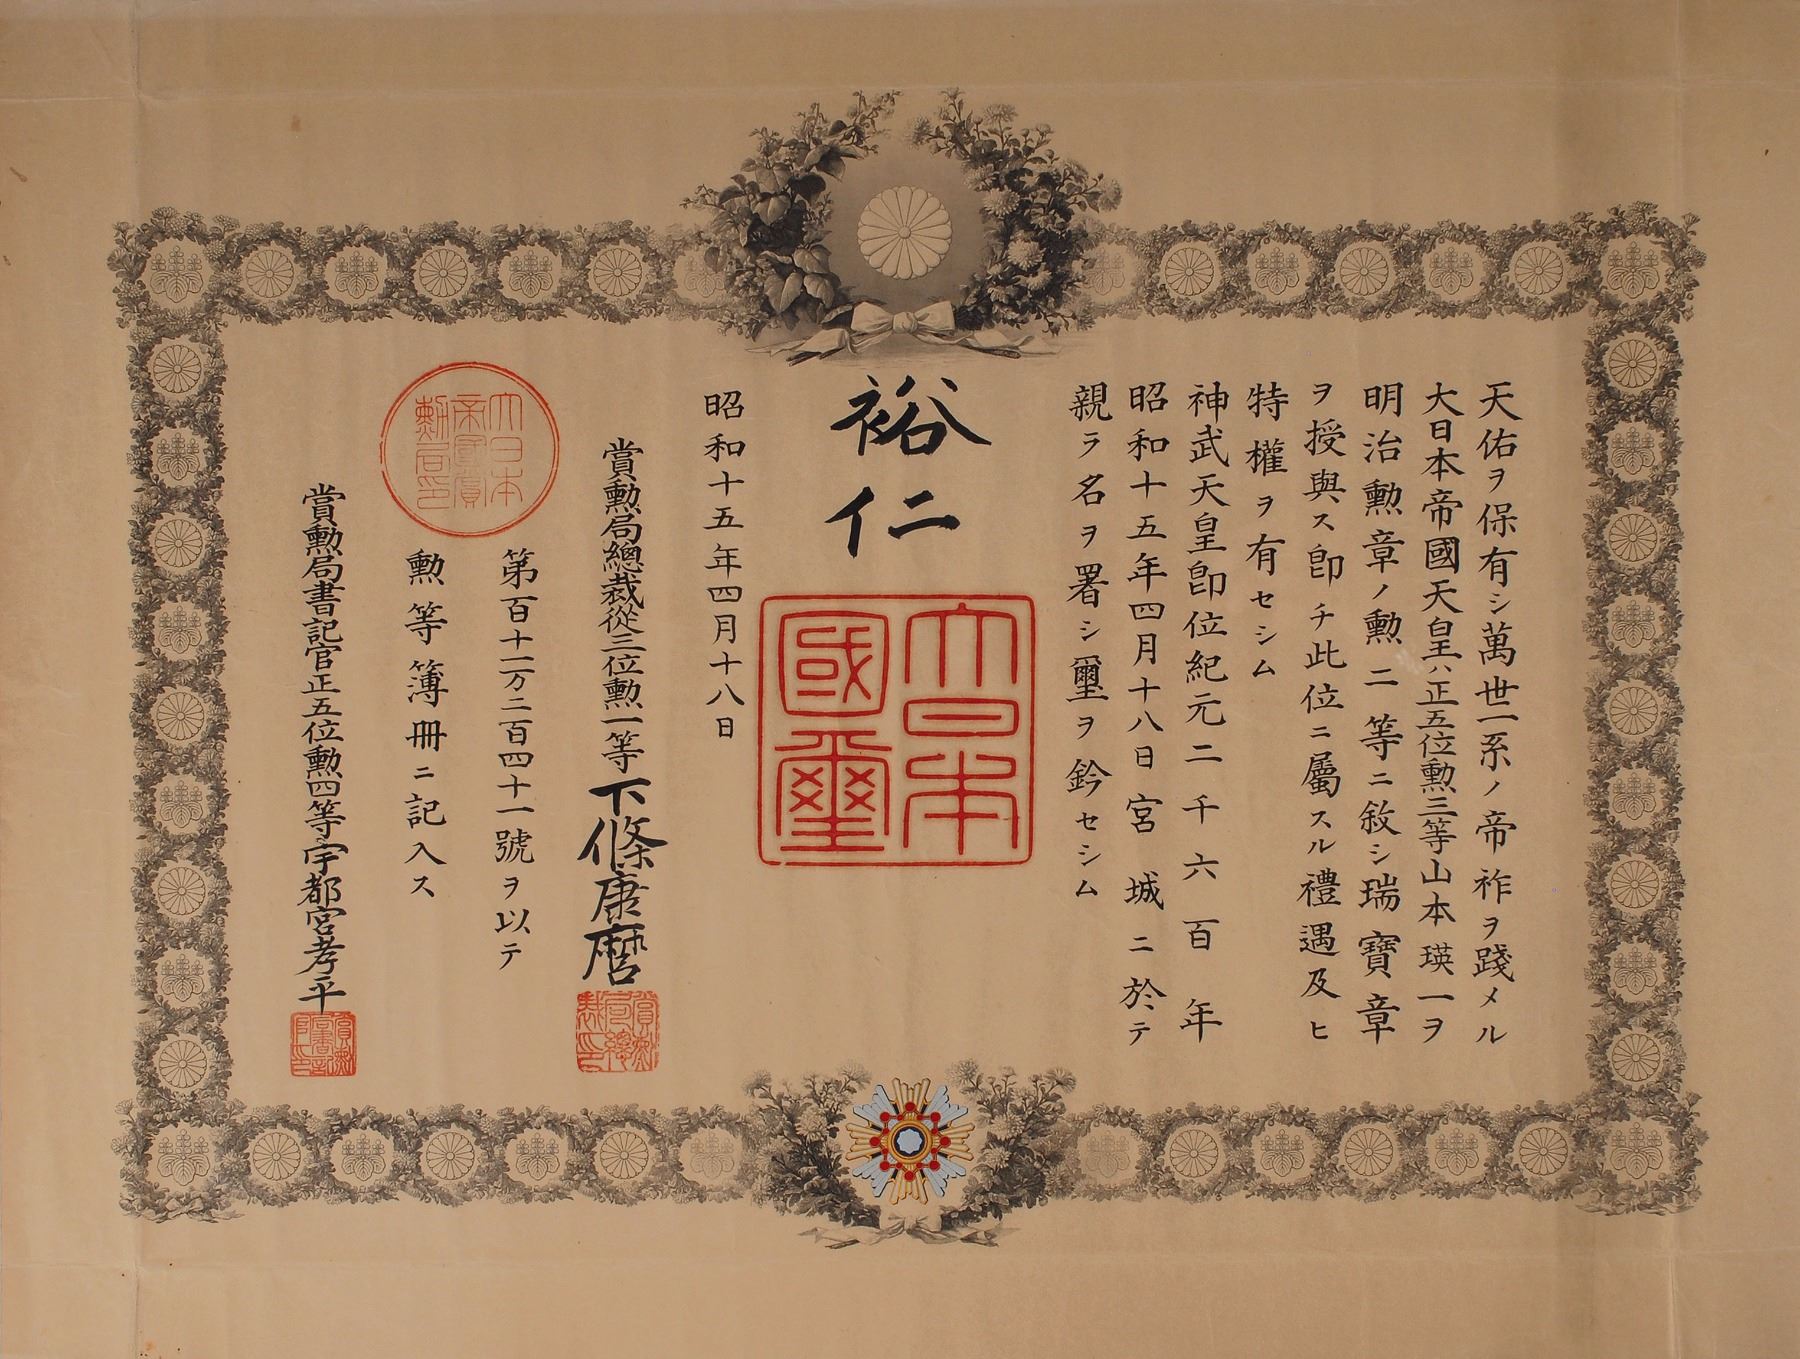 天佑ヲ保有シ萬世一系ノ帝祚ヲ踐メル
大日本帝國天皇ハ正五位勲三等山本瑛一ヲ
明治勲章ノ勲二等ニ敘シ瑞寶章
ヲ授與ス卽チ此位ニ屬スル禮遇及ヒ
特權ヲ有セシム
神武天皇卽位紀元二千六百年
昭和十五年四月十八日宮城ニ於テ
親ラ名ヲ署シ璽ヲ鈐セシム
裕仁
大日本
國璽
昭和十五年四月十八日
賞勲局總裁從三位勲一等下條康麿
賞勲局總裁印
第百十一万二百四十一號ヲ以テ
勲等簿冊ニ記入ス
大日本
帝國賞
勲局印
賞勲局書記官正五位勲四等宇都宮孝平